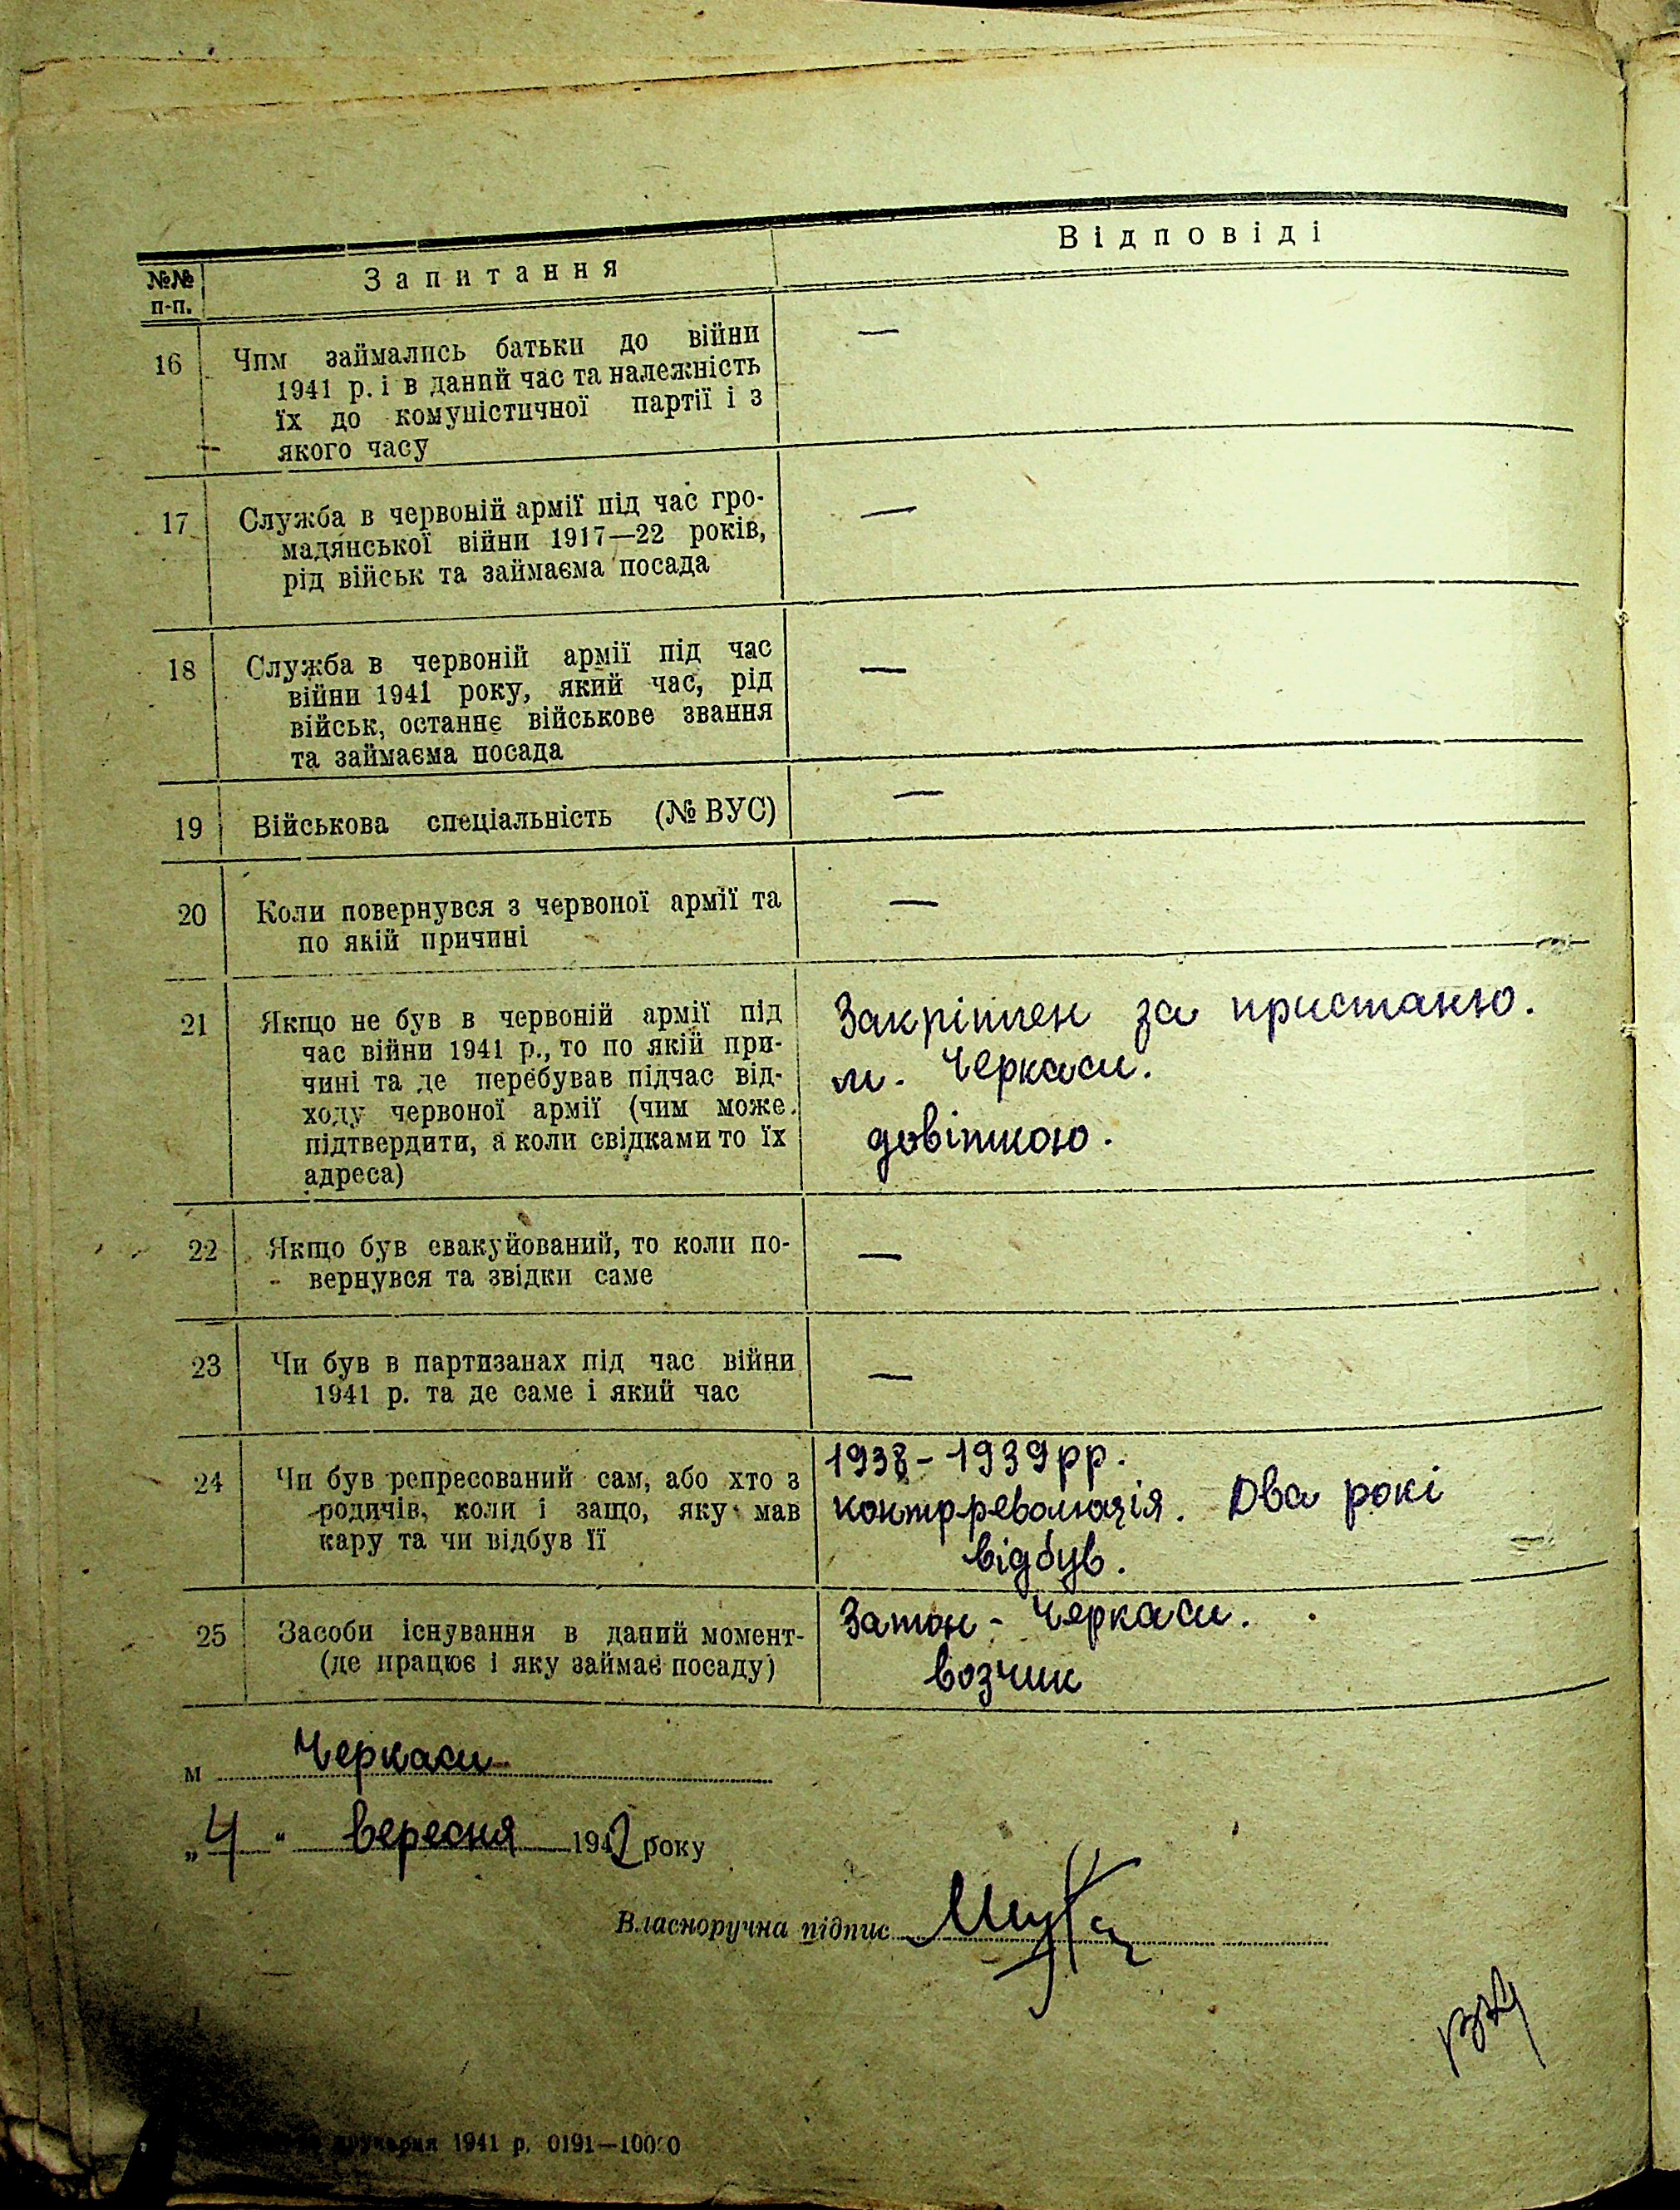 №№ п-п.
Запитання
Відповіді
16 Чим займались батьки до війни —
1941 р. і в даний час та належність
їх до комуністичної партії і з
якого часу
17 Служба в червоній армії під час гро- —
мадянської війни 1917—22 років,
рід військ та займаєма посада
18 Служба в червоній армії під час —
війни 1941 року, який час, рід
військ, останнє військове звання
та займаєма посада
19 Військова спеціальність (№ ВУС) —
20 Коли повернувся з червоної армії та —
по якій причині
21 Якщо не був в червоній армії під
час війни 1941 р., то по якій при-
чині та де перебував підчас від-
ходу червоної армії (чим може
підтвердити, а коли свідками то їх
адреса)
Закріплен за пристаню.
м. Черкаси.
довіткою.
22 Якщо був евакуйований, то коли по- —
вернувся та звідки саме
23 Чи був в партизанах під час війни —
1941 р. та де саме і який час
24 Чи був репресований сам, або хто з
родичів, коли і защо, яку мав
кару та чи відбув її
1938-1939рр.
контрреволюція. Два рокі
відбув.
25 Засоби існування в даний момент-
(де працює і яку займає посаду)
Затон - Черкаси.
возчик
м Черкаси
„4" вересня 1942 року
Власноручна підпис
друкарня 1941 р. 0191—10000